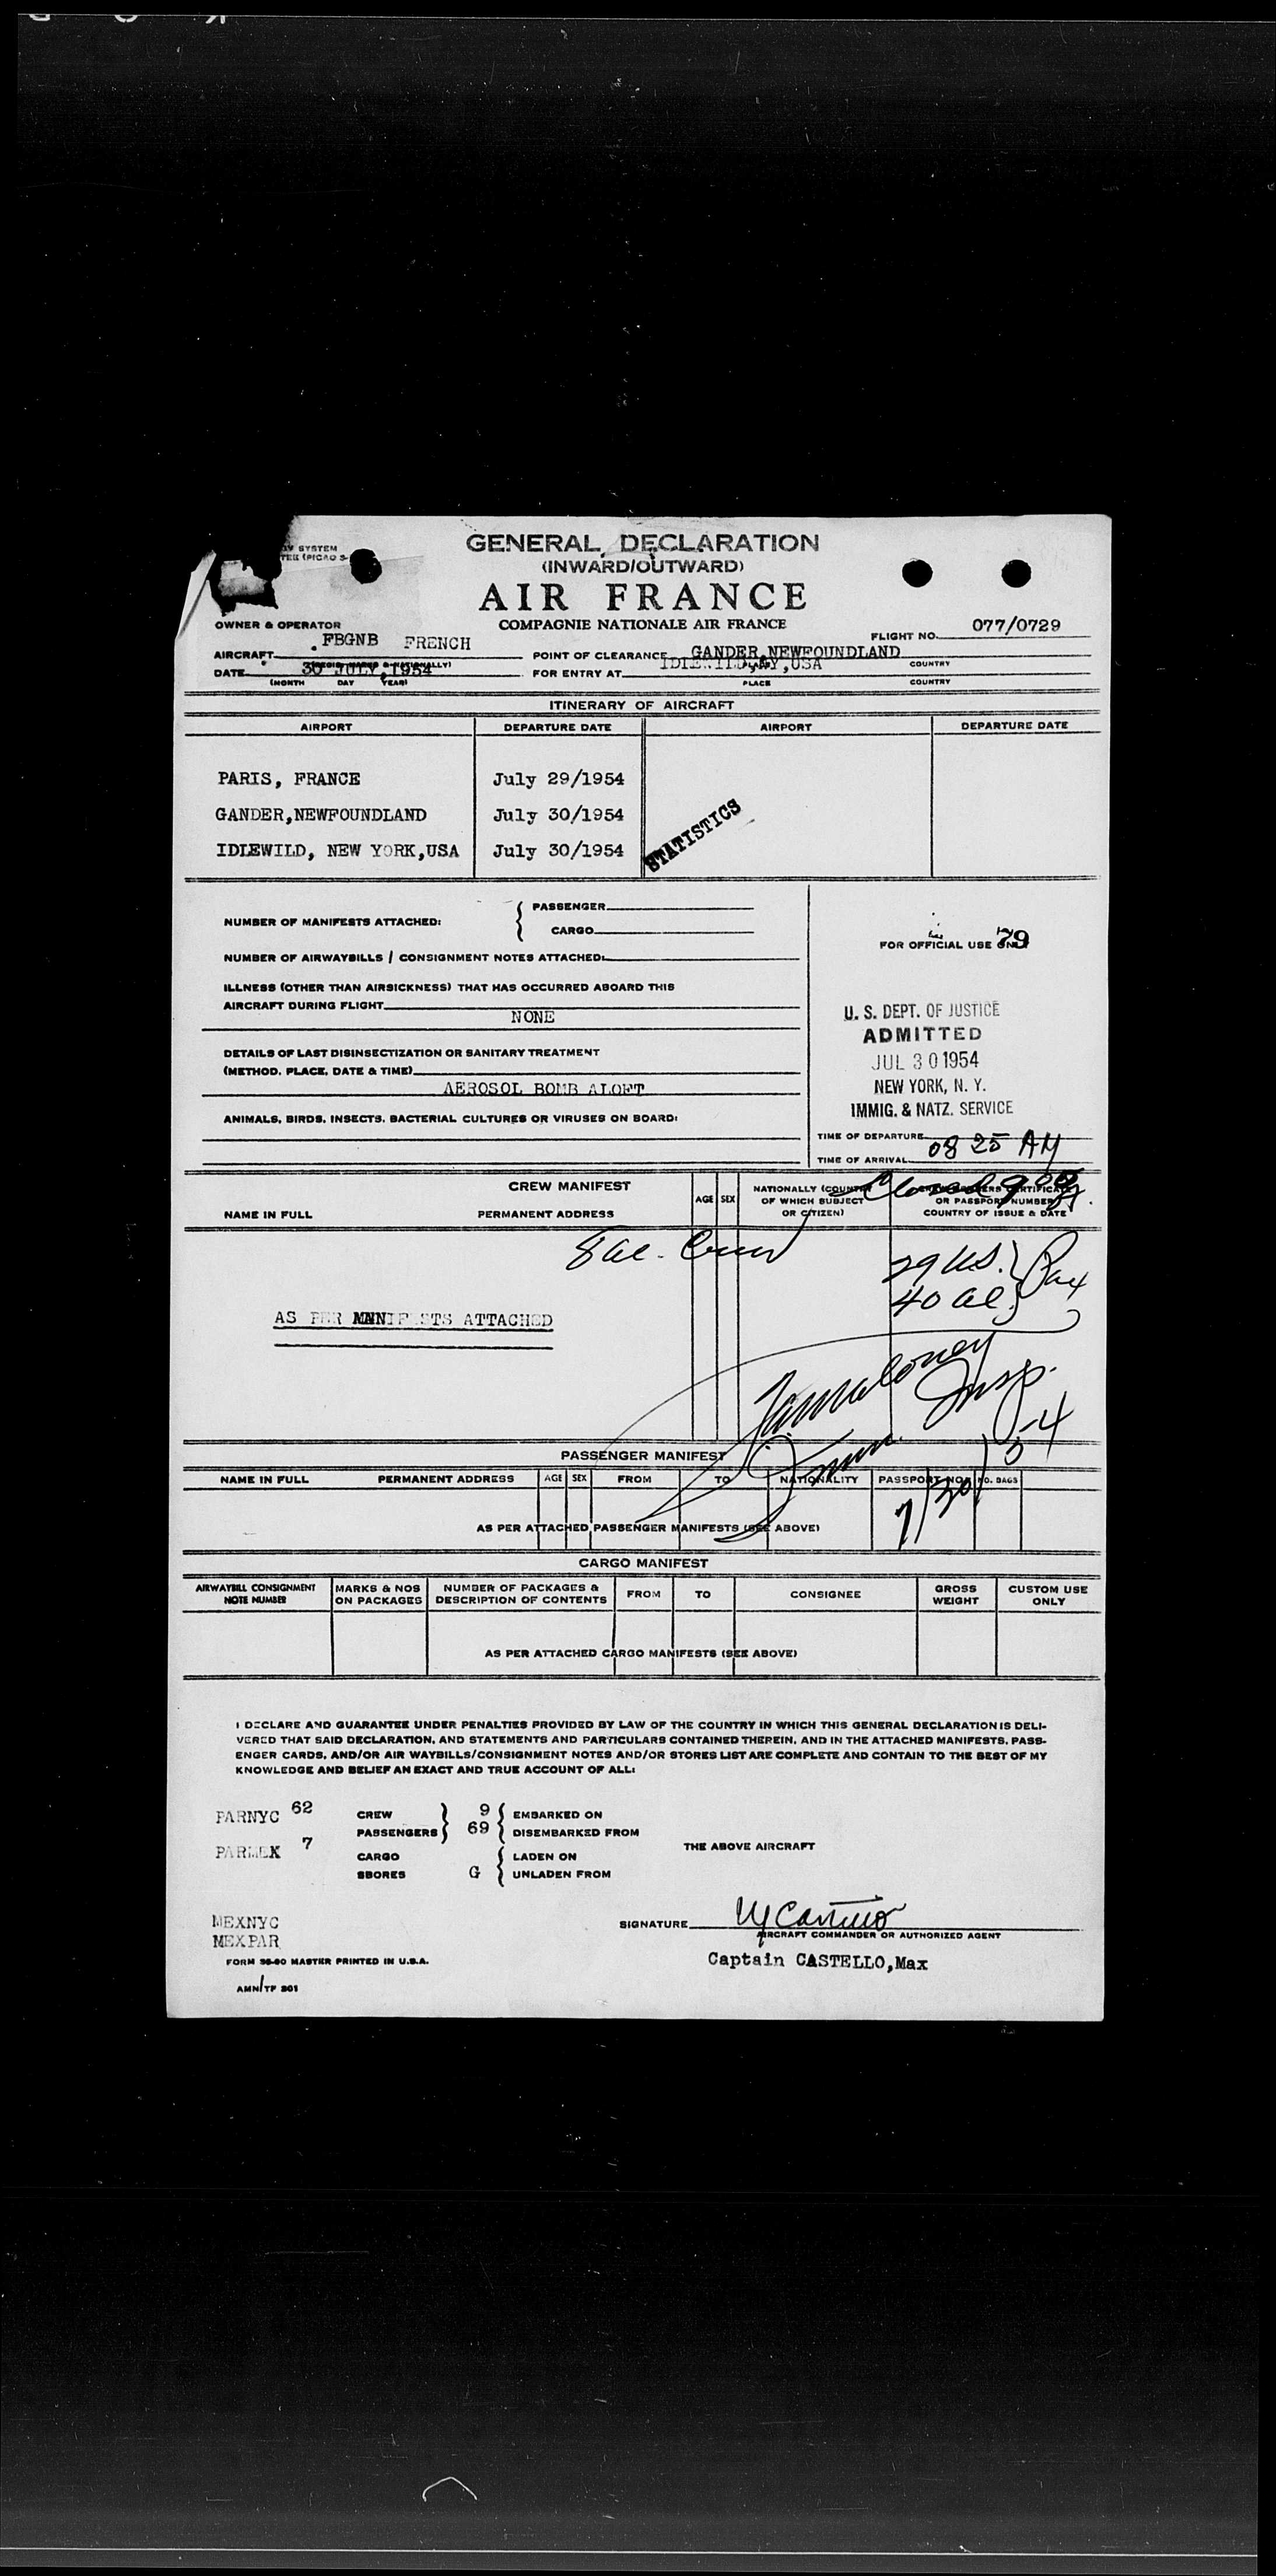 SYSTEM
GENERAL DECLARATION
(INWARD/OUTWARD)
AIR FRANCE
COMPAGNIE NATIONALE AIR FRANCE
OWNER & OPERATOR
FLIGHT NO. 077/0729
AIRCRAFT .FBGNB FRENCH
POINT OF CLEARANCE GANDER,NEWFOUNDLAND
COUNTRY
DATE 30 JULY,1954
(MONTH DAY YEAR)
FOR ENTRY AT IDLEWILD,NY,USA
PLACE COUNTRY
ITINERARY OF AIRCRAFT
AIRPORT DEPARTURE DATE AIRPORT DEPARTURE DATE
PARIS, FRANCE July 29/1954
GANDER,NEWFOUNDLAND July 30/1954
IDLEWILD, NEW YORK,USA July 30/1954
STATISTICS
NUMBER OF MANIFESTS ATTACHED: { PASSENGER
CARGO
NUMBER OF AIRWAYBILLS / CONSIGNMENT NOTES ATTACHED:
ILLNESS (OTHER THAN AIRSICKNESS) THAT HAS OCCURRED ABOARD THIS
AIRCRAFT DURING FLIGHT
NONE
DETAILS OF LAST DISINSECTIZATION OR SANITARY TREATMENT
(METHOD, PLACE, DATE & TIME)
AEROSOL BOMB ALOFT
ANIMALS, BIRDS, INSECTS, BACTERIAL CULTURES OR VIRUSES ON BOARD:
FOR OFFICIAL USE 79
U. S. DEPT. OF JUSTICE
ADMITTED
JUL 30 1954
NEW YORK, N. Y.
IMMIG. & NATZ. SERVICE
TIME OF DEPARTURE
TIME OF ARRIVAL 08 25 AM
CREW MANIFEST
NAME IN FULL PERMANENT ADDRESS AGE SEX
NATIONALLY (COUNTRY
OF WHICH SUBJECT
OR CITIZEN)
CERTIFICATE
OR PASSPORT NUMBER
COUNTRY OF ISSUE & DATE
8 al. Crew
29 US. } Pax
40 al.
AS PER MANIFESTS ATTACHED
Insp.
7/30/54
PASSENGER MANIFEST
NAME IN FULL PERMANENT ADDRESS AGE SEX FROM TO NATIONALITY PASSPORT NO. NO. BAGS
AS PER ATTACHED PASSENGER MANIFESTS (SEE ABOVE)
CARGO MANIFEST
AIRWAYBILL CONSIGNMENT NOTE NUMBER
MARKS & NOS ON PACKAGES
NUMBER OF PACKAGES & DESCRIPTION OF CONTENTS
FROM TO CONSIGNEE
GROSS WEIGHT
CUSTOM USE ONLY
AS PER ATTACHED CARGO MANIFESTS (SEE ABOVE)
I DECLARE AND GUARANTEE UNDER PENALTIES PROVIDED BY LAW OF THE COUNTRY IN WHICH THIS GENERAL DECLARATION IS DELI-
VERED THAT SAID DECLARATION, AND STATEMENTS AND PARTICULARS CONTAINED THEREIN, AND IN THE ATTACHED MANIFESTS, PASS-
ENGER CARDS, AND/OR AIR WAYBILLS/CONSIGNMENT NOTES AND/OR STORES LIST ARE COMPLETE AND CONTAIN TO THE BEST OF MY
KNOWLEDGE AND BELIEF AN EXACT AND TRUE ACCOUNT OF ALL:
PARNYC 62 CREW } 9 { EMBARKED ON
PASSENGERS } 69 { DISEMBARKED FROM
PARMEX 7 CARGO { LADEN ON
THE ABOVE AIRCRAFT
SBORES G { UNLADEN FROM
MEXNYC
MEXPAR
SIGNATURE
AIRCRAFT COMMANDER OR AUTHORIZED AGENT
Captain CASTELLO,Max
FORM 36-60 MASTER PRINTED IN U.S.A.
AMN/TF 201